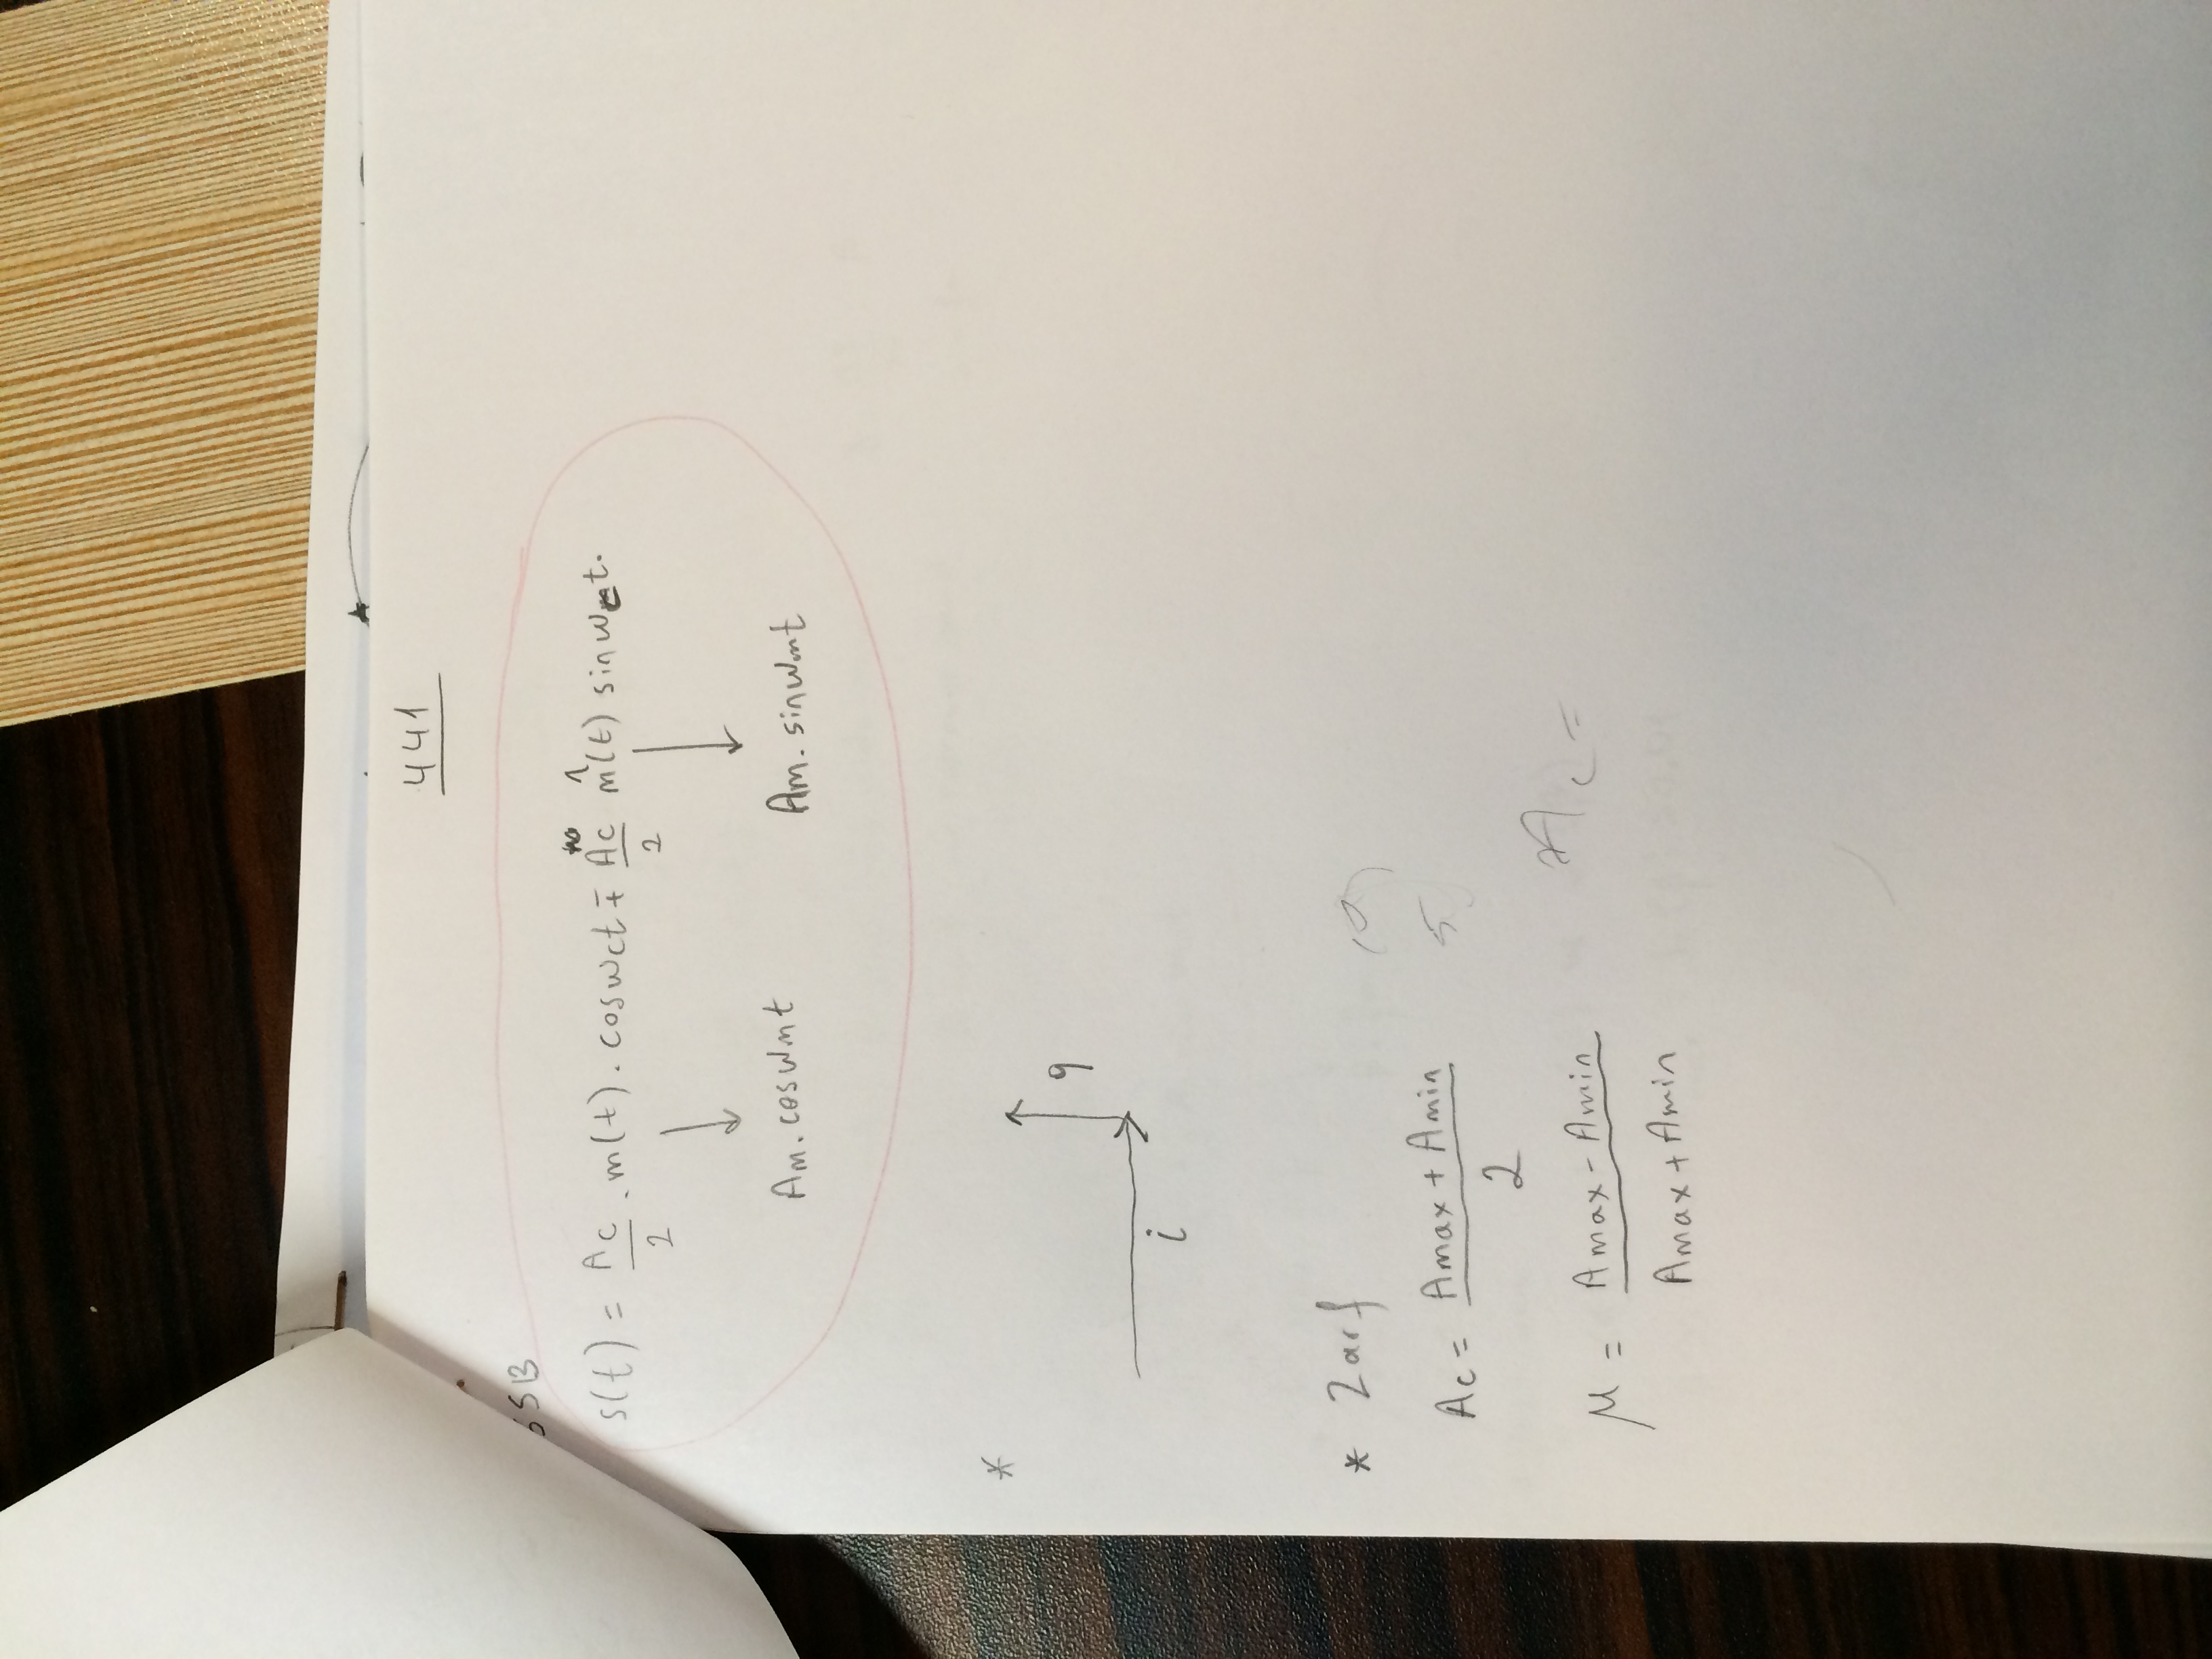 441
SSB
s(t) = Ac/2 . m(t) . coswct ∓ Ac/2 m̂(t) sinwct.
Am. coswmt Am. sinwmt
*
q
i
* Zarf
Ac = Amax + Amin / 2
5
Ac =
μ = Amax - Amin / Amax + Amin